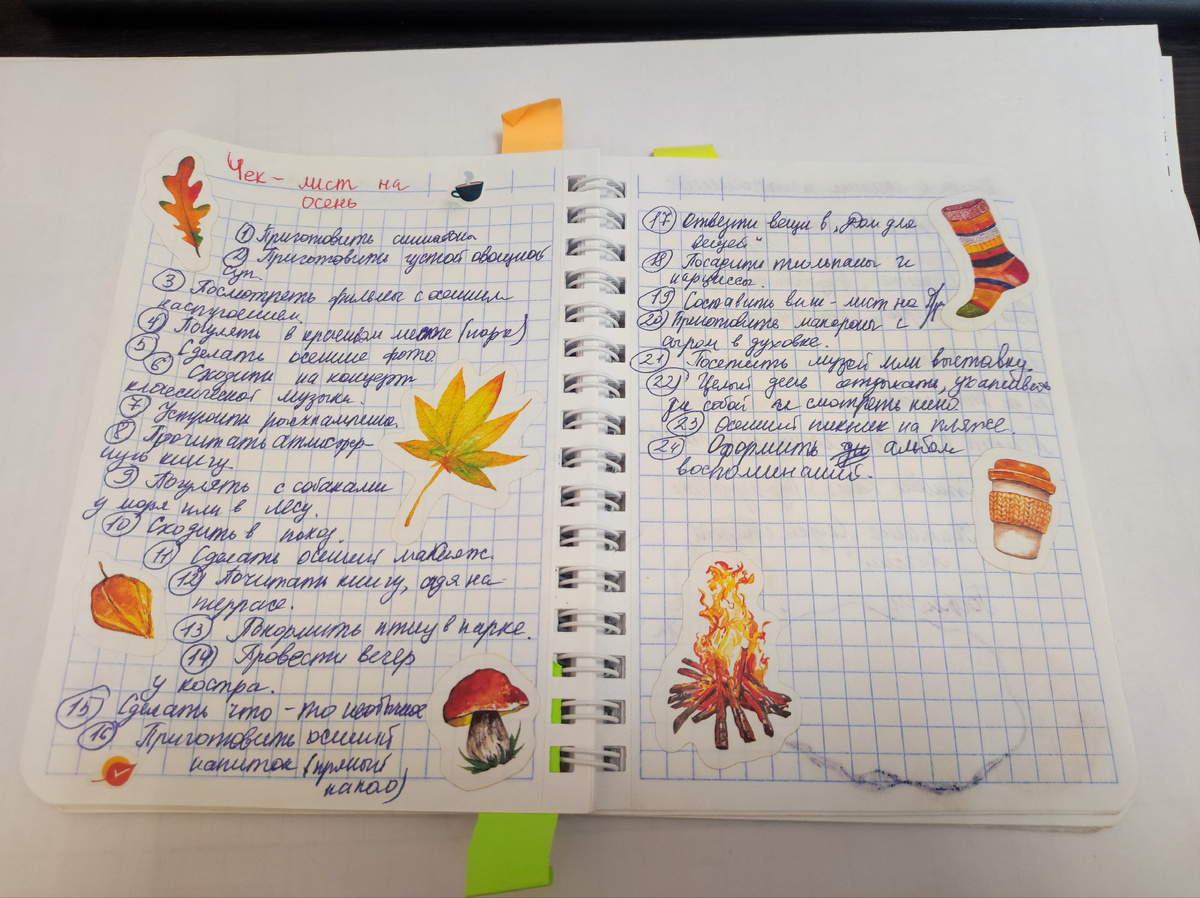 Чек-лист на
осень
1 Приготовить синнабон
2 Приготовить густой овощной
суп
3 Посмотреть фильмы с осенним
настроением.
4 Погулять в красивом месте (парк)
5 Сделать осенние фото
6 Сходить на концерт
классической музыки.
7 Устроить расхламление.
8 Прочитать атмосфер-
ную книгу
9 Погулять с собаками
у моря или в лесу.
10 Сходить в поход.
11 Сделать осенний макияж.
12 Почитать книгу, сидя на
террасе.
13 Покормить птиц в парке.
14 Провести вечер
у костра.
15 Сделать что-то необычное
16 Приготовить осенний
напиток (пряный
какао)
17 Отвезти вещи в „Дом для
вещей“
18 Посадить тюльпаны и
нарциссы.
19 Составить виш-лист на
20 Приготовить макароны с
сыром в духовке.
21 Посетить музей или выставку.
22 Целый день отдыхать, ухаживать
за собой и смотреть кино
23 Осенний пикник на пляже.
24 Оформить альбом
воспоминаний.